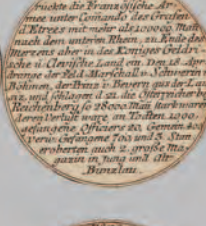 rückte die Französische Ar-
mee unter Comando des Grafen
d'Etrees mit mehr als 100000. Mañ
nach dem untern Rhein, zu Ende des
Merzens aber in des Königes Geldri-
sche u. Clevische Land ein. Den 18. Apr.
drange der Feld-Marschall v. Schwerin in
Böhmen, der Prinz v. Bevern aus der Lau-
nz, und schlugen d. 21. die Österreicher bey
Reichenberg so 28000. Mañ stark ware
deren Verlust ware an Todten 1000.
gefangene Officiers 20, Gemein. 400
verw. Gefangene 700, und 3. Stan
eroberten auch 2. große Ma-
gazin in Jung und Alt-
Bunzlau.